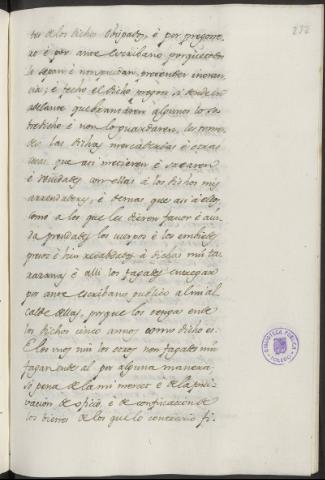 232
tes de los dichos Obispados, è por pregone-
ro è por ante Escribano porque todos
lo sepan è non puedan pretender inoran-
cia; è fecho el dicho pregon, si dende en
adelante quebrantaren algunos lo so-
bredicho è non lo guardaren, les tome-
des las dichas mercaderías è otras
cosas que asi metieren è sacaren
è acudades con ellas à los dichos mis
arrendadores, è demas que asi à ellos,
como à los que les dieren favor è aiu-
da prendades los cuerpos è los embiedes
presos è bien recabdados à dichas mis ta-
razanas è alli los fagades entregar
por ante escribano publico al mi al-
calde dellas, porque los tenga en de
los dichos cinco annos como dicho es.
E los unos nin los otros non fagades nin
fagan ende al por alguna manera
so pena de la mi merced è de la priv-
vacion de oficio, è de confiscacion de
los bienes de los que lo contrario fi-
BIBLIOTECA PUBLICA
TOLEDO